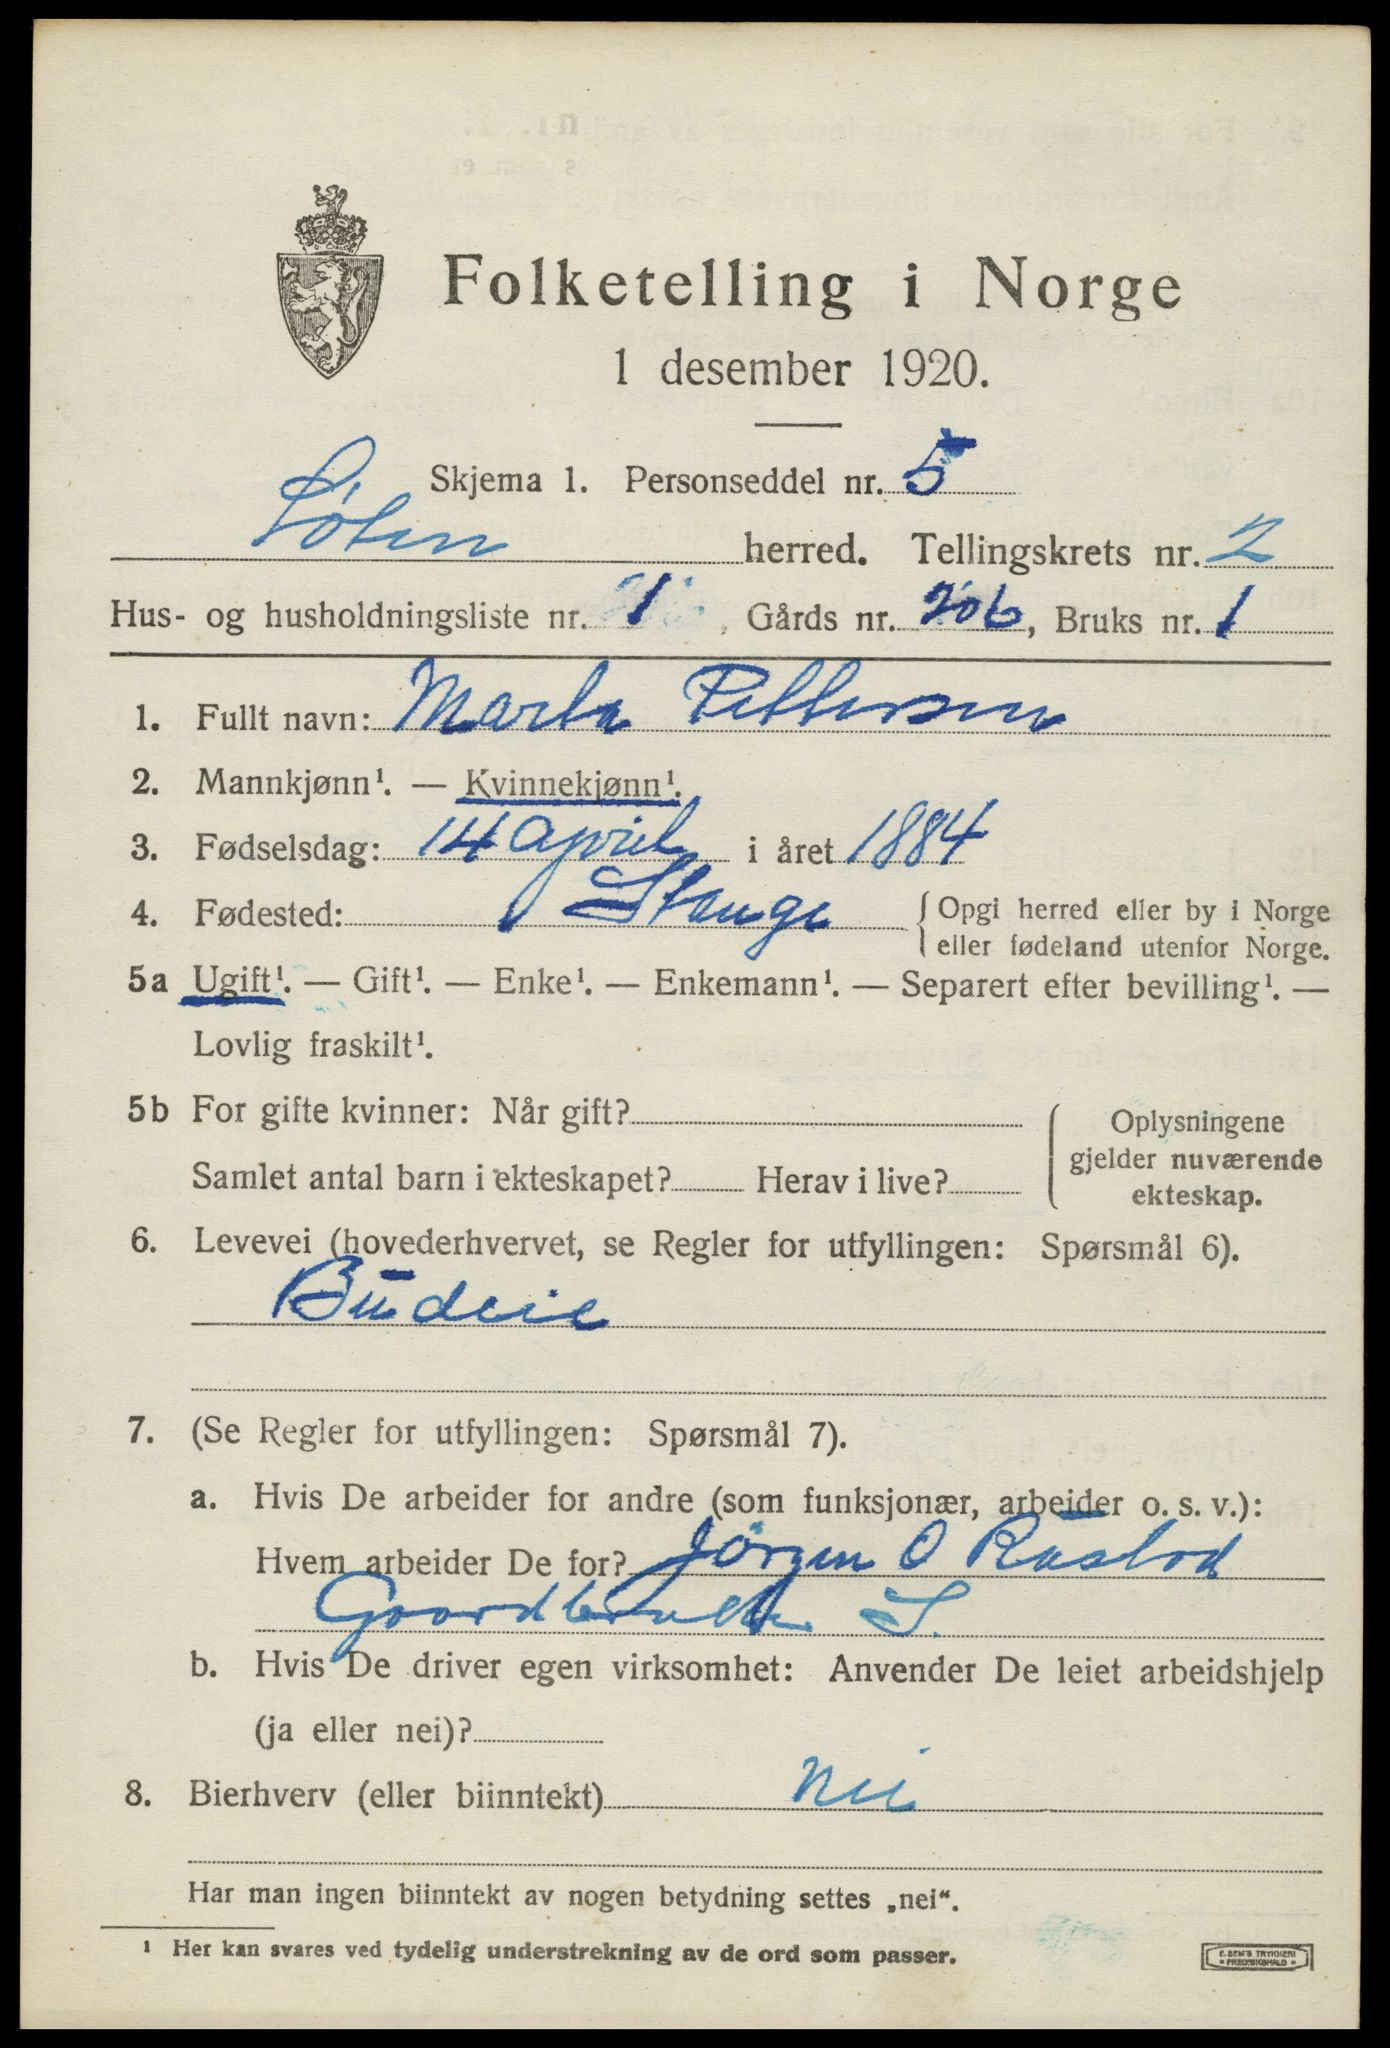 Folketelling i Norge
1 desember 1920.
Skjema 1. Personseddel nr. 5
Löten herred. Tellingskrets nr. 2
Hus- og husholdningsliste nr. 1, Gårds nr. 206, Bruks nr. 1
1. Fullt navn: Marta Pettersen
2. Mannkjønn¹. — Kvinnekjønn¹.
3. Fødselsdag: 14 April i året 1884
4. Fødested: Stange {Opgi herred eller by i Norge
eller fødeland utenfor Norge.
5a Ugift¹. — Gift¹. — Enke¹. — Enkemann¹. — Separert efter bevilling¹. —
Lovlig fraskilt¹.
5b For gifte kvinner: Når gift?
Samlet antal barn i ekteskapet? Herav i live?
Oplysningene
gjelder nuværende
ekteskap.
6. Levevei (hovederhvervet, se Regler for utfyllingen: Spørsmål 6).
Budeie
7. (Se Regler for utfyllingen: Spørsmål 7).
a. Hvis De arbeider for andre (som funksjonær, arbeider o. s. v.):
Hvem arbeider De for? Jörgen O Rustad
Gaardbruker S.
b. Hvis De driver egen virksomhet: Anvender De leiet arbeidshjelp
(ja eller nei)?
8. Bierhverv (eller biinntekt) nei
Har man ingen biinntekt av nogen betydning settes „nei“.
¹ Her kan svares ved tydelig understrekning av de ord som passer.
E. SEM'S TRYKKERI
FREDRIKSHALD